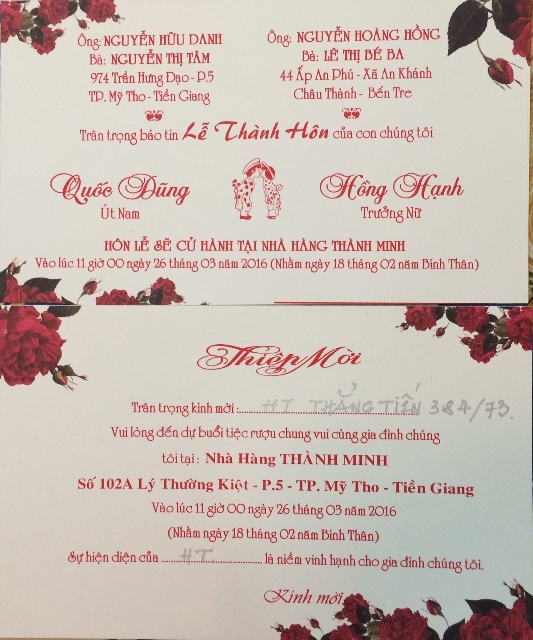 Ông: NGUYỄN HỮU DANH
Bà: NGUYỄN THỊ TÂM
974 Trần Hưng Đạo - P.5
TP. Mỹ Tho - Tiền Giang
Ông: NGUYỄN HOÀNG HỒNG
Bà: LÊ THỊ BÉ BA
44 Ấp An Phú - Xã An Khánh
Châu Thành - Bến Tre
Trân trọng báo tin Lễ Thành Hôn của con chúng tôi
Quốc Dũng
Út Nam
Hồng Hạnh
Trưởng Nữ
HÔN LỄ SẼ CỬ HÀNH TẠI NHÀ HÀNG THÀNH MINH
Vào lúc 11 giờ 00 ngày 26 tháng 03 năm 2016 (Nhằm ngày 18 tháng 02 năm Bính Thân)
Thiệp Mời
Trân trọng kính mời :.......... HT THẮNG TIẾN 384/73.
Vui lòng đến dự buổi tiệc rượu chung vui cùng gia đình chúng
tôi tại : Nhà Hàng THÀNH MINH
Số 102A Lý Thường Kiệt - P.5 - TP. Mỹ Tho - Tiền Giang
Vào lúc 11 giờ 00 ngày 26 tháng 03 năm 2016
(Nhằm ngày 18 tháng 02 năm Bính Thân)
Sự hiện diện của ..... HT .......... là niềm vinh hạnh cho gia đình chúng tôi.
Kính mời